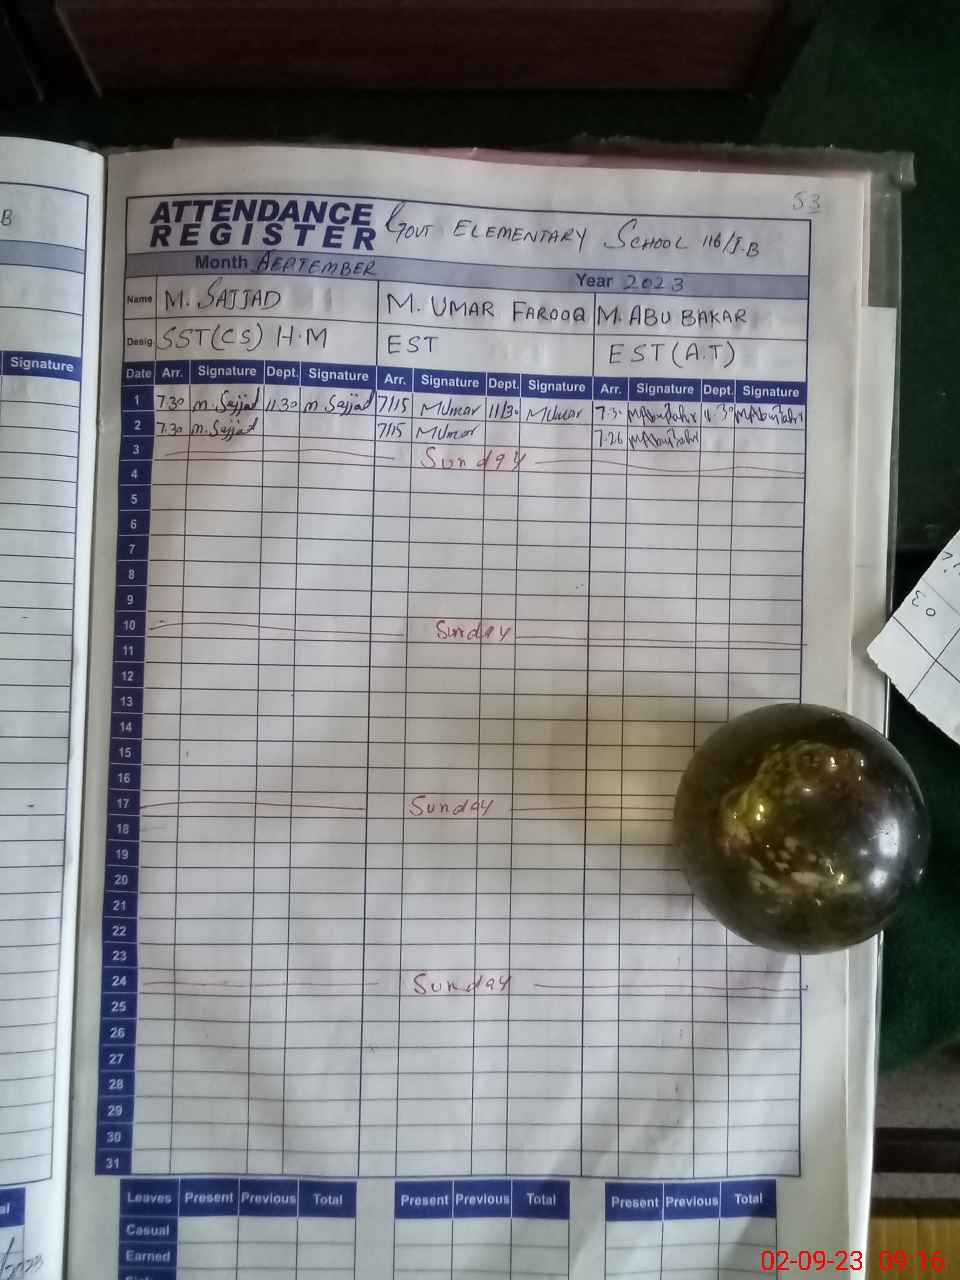 B
Signature
53
ATTENDANCE REGISTER Govt ELEMENTARY SCHOOL 116/I-B
Month SEPTEMBER Year 2023
Name M. SAJJAD M. UMAR FAROOQ M. ABU BAKAR
Desig. SST(CS) H.M EST EST (A.T)
Date Arr. Signature Dept. Signature Arr. Signature Dept. Signature Arr. Signature Dept. Signature
1 7.30 M. Sajjad 11.30 M. Sajjad 7/15 MUmar 11/30 MUmar MAbuBakr MAbuBakr
2 7.30 M. Sajjad 7/15 MUmar 7.26 MAbuBakr
3 Sunday
4
5
6
7
8
9
10 Sunday
11
12
13
14
15
16
17 Sunday
18
19
20
21
22
23
24 Sunday
25
26
27
28
29
30
31
Leaves Present Previous Total Present Previous Total Present Previous Total
Casual
Earned
03
02-09-23 09:16